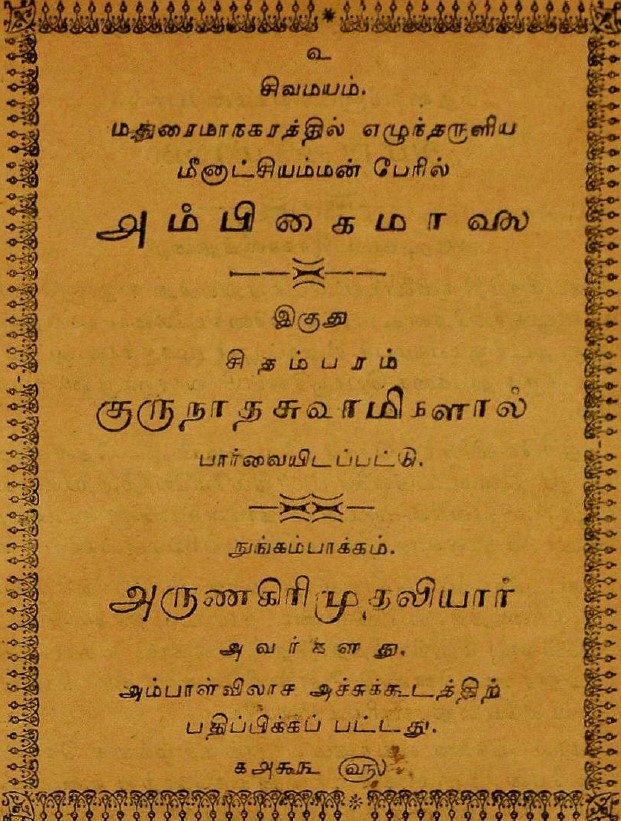 உ
சிவமயம்.
மதுரைமாநகரத்தில் எழுந்தருளிய
மீனாட்சியம்மன் பேரில்
அம்பிகைமாலை
இஃது
சிதம்பரம்
குருநாதசுவாமிகளால்
பார்வையிடப்பட்டு.
நுங்கம்பாக்கம்.
அருணகிரிமுதலியார்
அவர்களது.
அம்பாள்விலாச அச்சுக்கூடத்திற்
பதிப்பிக்கப் பட்டது.
௧௮௯௩ ௵